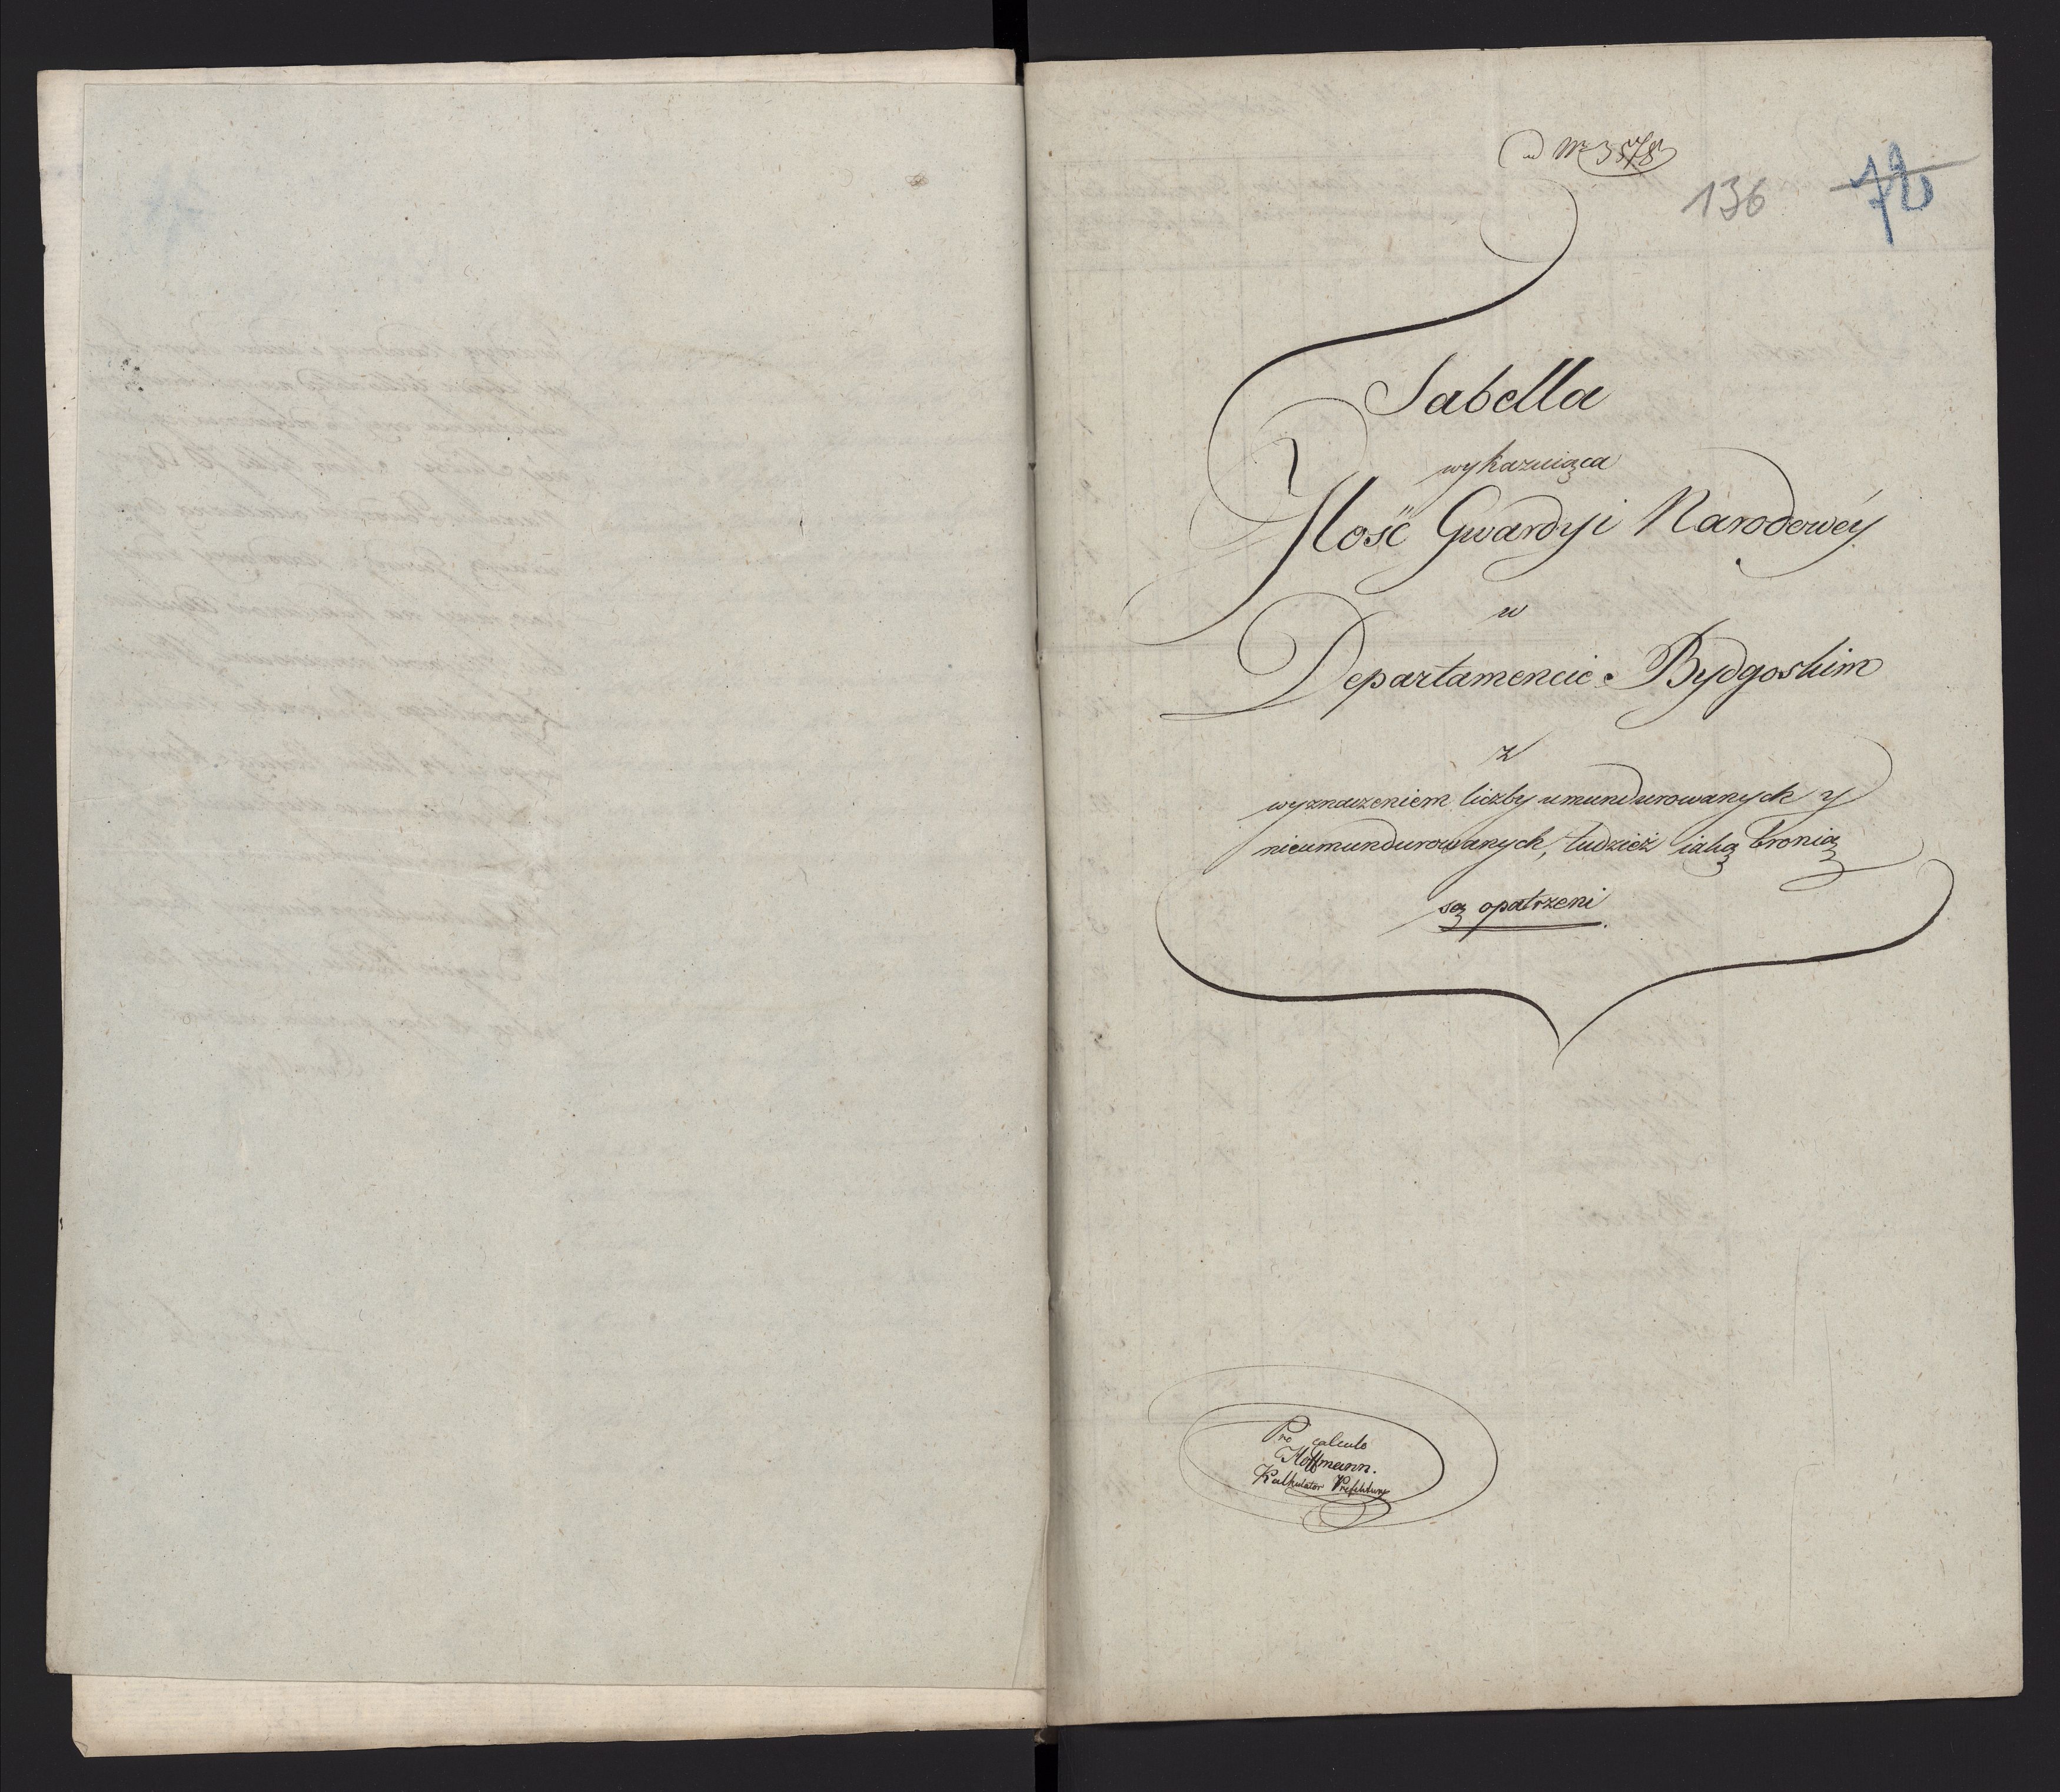 ad Nr 3578
136
72
Tabella
wykazuiąca
Ilość Gwardyi Narodowéy
w
Departamencie Bydgoskim
z
wyznaczeniem liczby umundurowanych y
nieumundurowanych, tudzież iaką bronią
są opatrzeni.
Pro calculo
Hoffmann.
Kalkulator Prefektury